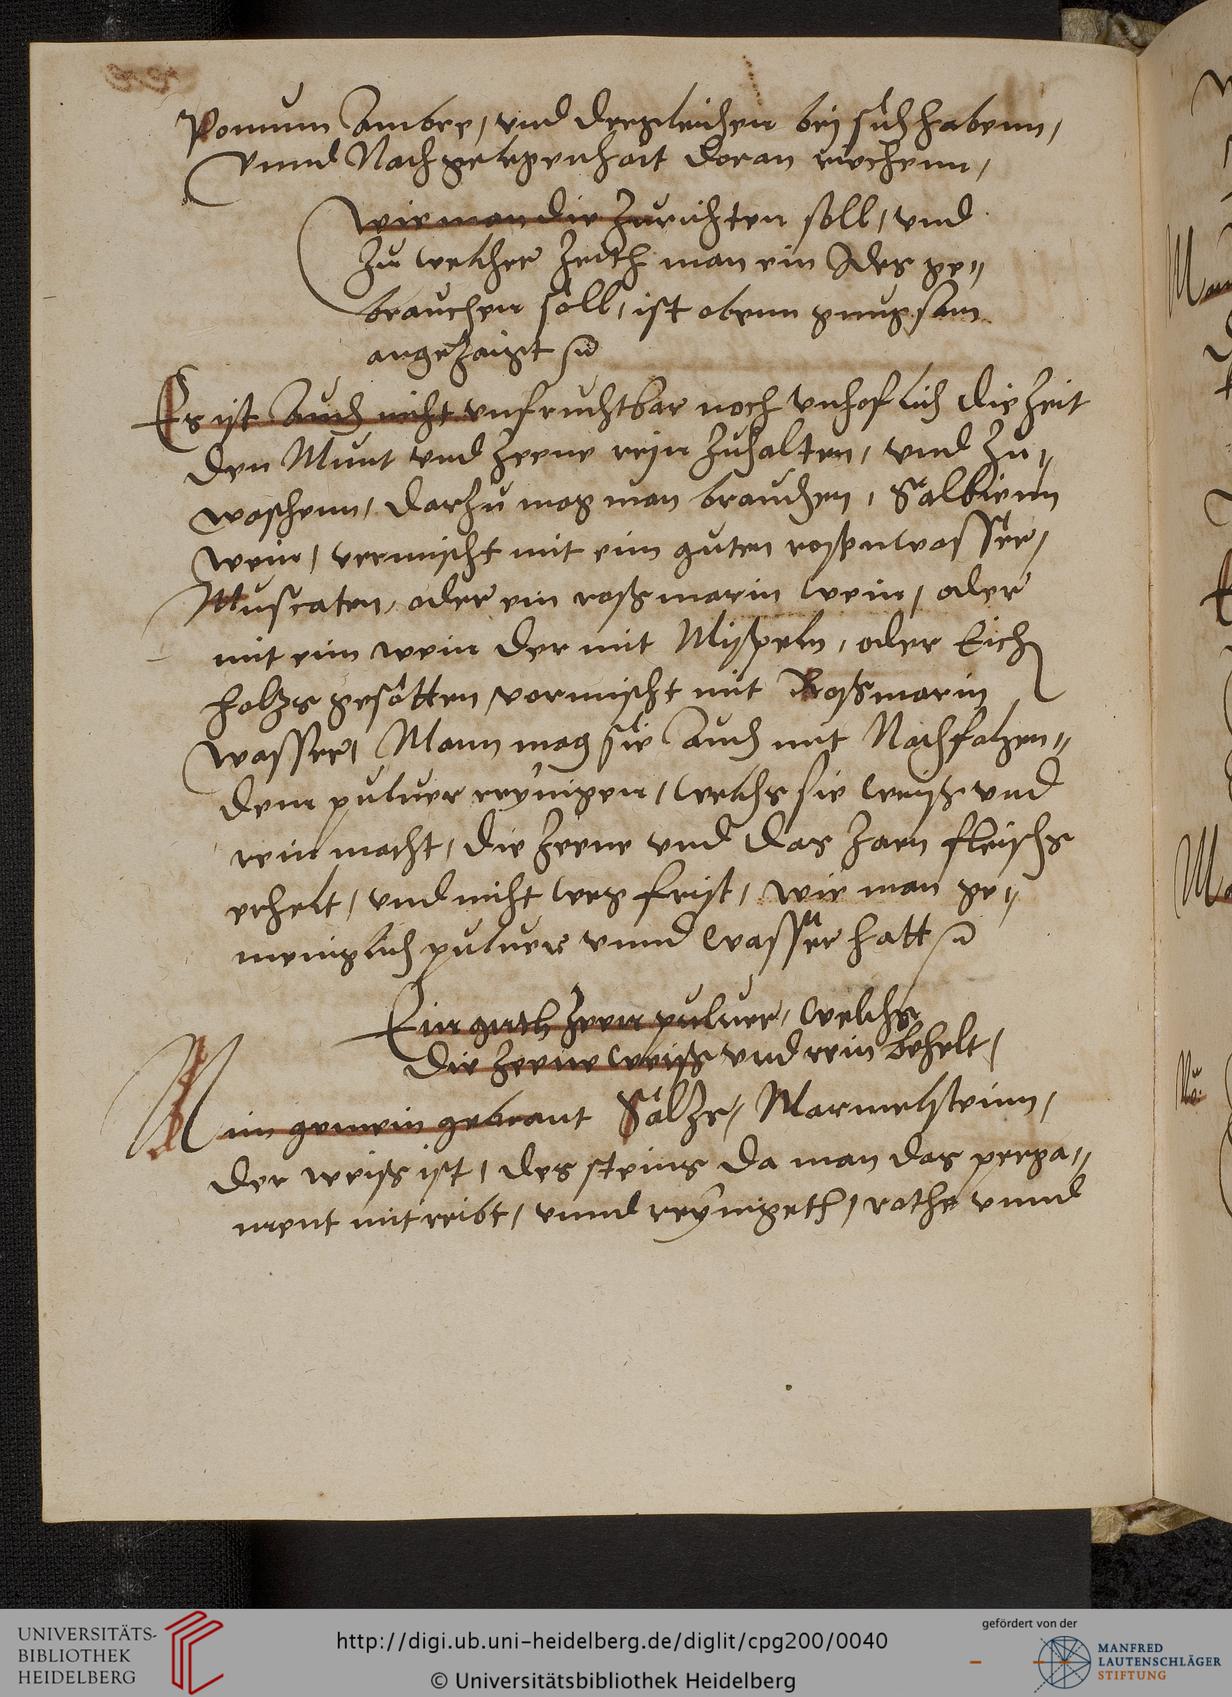 Pomum Ambre, und dergleichen bej sich habenn,
Vnnd Nach gelegenhait doran riechenn,
Wie man die Zurichten soll, und
Zu welcher Zeith man ein Ides ge„
brauchen soll, ist obenn gnugsam
angezaigt
Es ist Auch nicht unfruchtbar noch unhoflich die Zeit
den Munt und Zeene rejn Zuhalten, und Zu„
waschenn, darzu mag man brauchen, Salbienn
wein, vermischt mit eim guten roßenwasser,
Muscaten, oder ein roßmarin wein, oder
mit eim wein der mit Mißpeln, oder Eich
holtzs gesotten, vormischt mit Roßmarin
wasser, Mann mag sie Auch mit Nachfolgen„
dem puluer reynigen, welchs sie weyß und
rein macht, die Zeene und das Zaen fleischs
erhelt, und nicht weg frist, wie man ge„
meniglich puluer vnnd wasser hatt
Ein guth Zeen puluer, welchs
die Zeene weiß und rein behelt,
Nim gemein gebrant Saltze, Marmelsteinn,
der weiß ist, des steins da man das perga„
ment mit reibt, vnnd reynigeth, rothe vnnd
UNIVERSITÄTS-
BIBLIOTHEK
HEIDELBERG
http://digi.ub.uni-heidelberg.de/diglit/cpg200/0040
© Universitätsbibliothek Heidelberg
gefördert von der
MANFRED
LAUTENSCHLÄGER
STIFTUNG